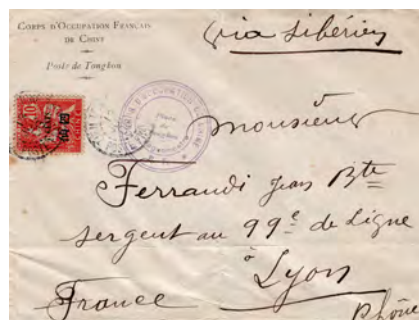 CORPS D'OCCUPATION FRANÇAIS
DE CHINE
Poste de Tongkou
via Sibérien
10
CORPS D'OCCUPATION DE CHINE
Monsieur
Ferrandi Jean Bte
sergent au 99e de Ligne
à Lyon
France
Rhône